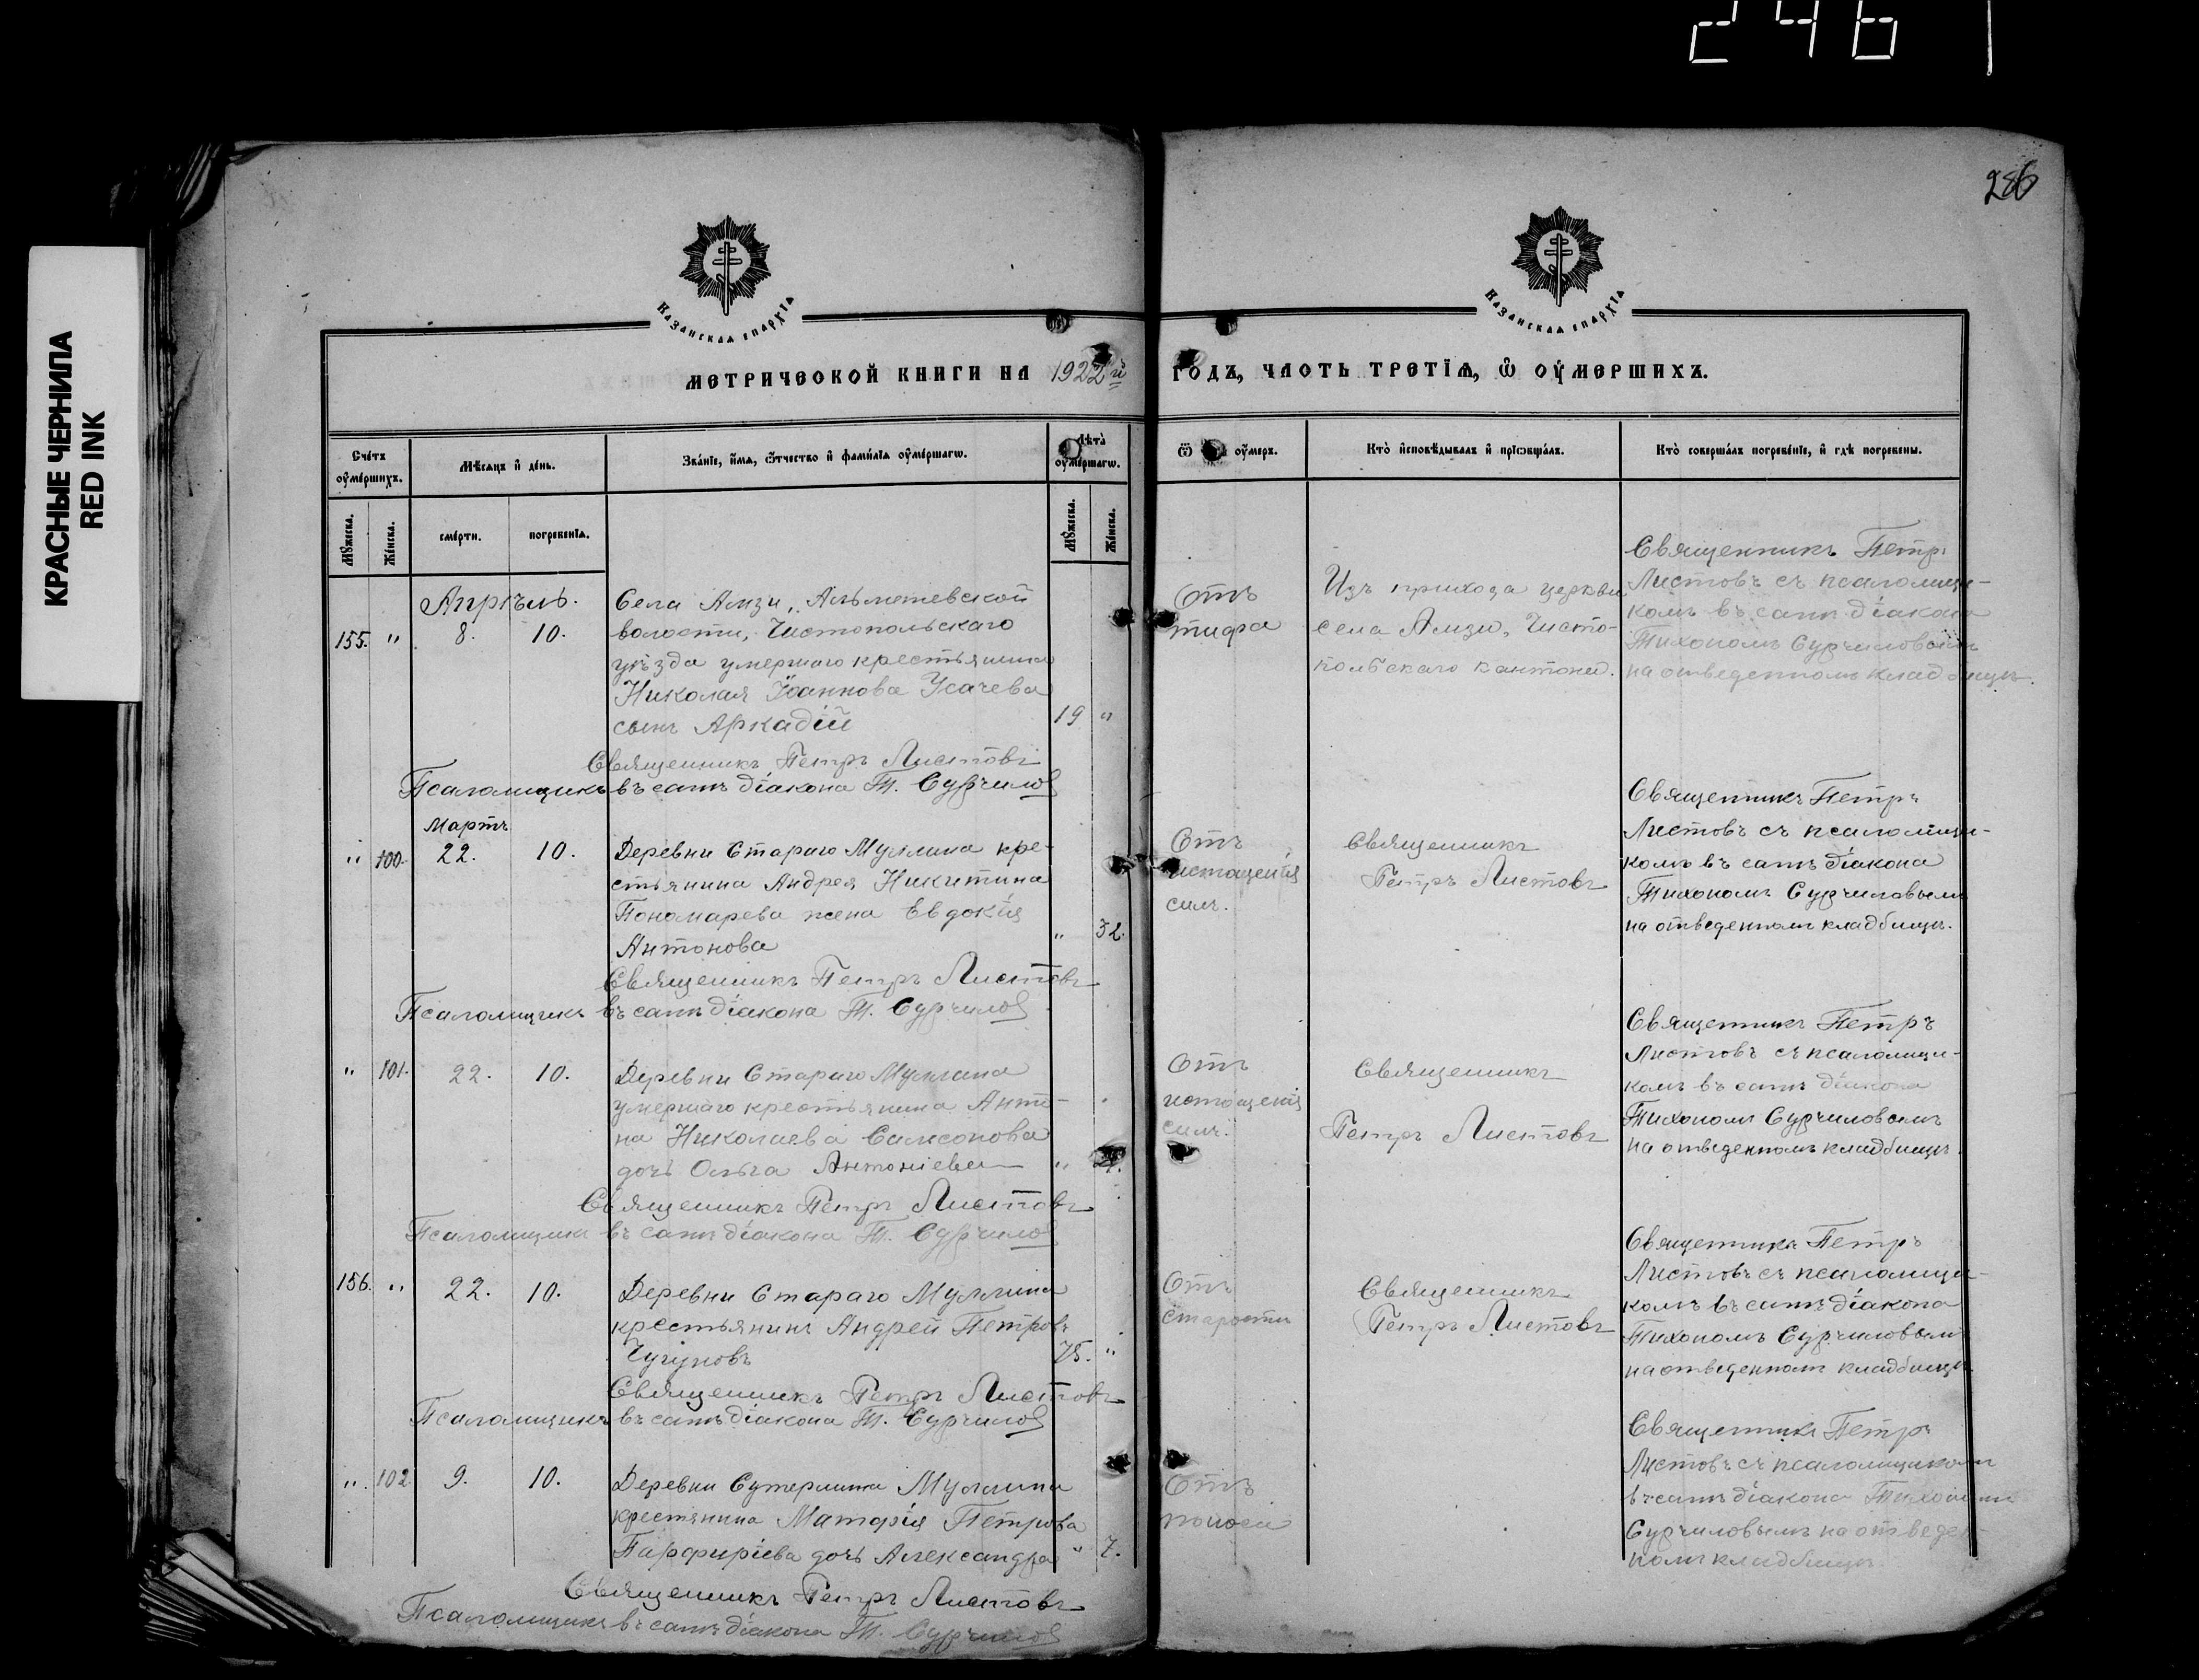 246
КРАСНЫЕ ЧЕРНИЛА
RED INK
286
Казанская епархїѧ
Казанская епархїѧ
МЕТРИЧЕСКОЙ КНИГИ НА 1922й ГОДЪ, ЧАСТЬ ТРЕТЇѦ, Ѿ ОУМЕРШИХЪ.
Счетъ оумершихъ.
Мѣсяцъ и день.
Званїе, имѧ, ѿчество и фамилїа оумершагѡ.
Лѣта оумершагѡ.
Ѿ оумеръ.
Кто исповѣдывалъ и прїѡбщалъ.
Кто совершалъ погребенїе, и гдѣ погребены.
Мужеска.
Женска.
смерти.
погребенїѧ.
Мужеска.
Женска.
Апрѣль.
155. " 8. 10.
Села Амзи, Альметевской
волости, Чистопольскаго
уѣзда умершаго крестьянина
Николая Іоаннова Усачева
сынъ Аркадій
19 "
Отъ
тифа
Изъ прихода церкви
села Амзи, Чисто-
польскаго кантона.
Священникъ Петръ
Листовъ съ псаломщи-
комъ въ санѣ діакона
Тихономъ Сурчиловымъ
на отведенномъ кладбищѣ.
Священникъ Петръ Листовъ
Псаломщикъ въ санѣ діакона Т. Сурчилов
Мартъ
" 100. 22. 10.
Деревни Стараго Муллина кре-
стьянина Андрея Никитина
Пономарева жена Евдокія
Антонова
" 32.
Отъ
истощенія
силъ.
Священникъ
Петръ Листовъ
Священникъ Петръ
Листовъ съ псаломщи-
комъ въ санѣ діакона
Тихономъ Сурчиловымъ
на отведенномъ кладбищѣ.
Священникъ Петръ Листовъ
Псаломщикъ въ санѣ діакона Т. Сурчилов
" 101. 22. 10.
Деревни Стараго Муллина
умершаго крестьянина Анто-
на Николаева Самсонова
дочь Ольга Антоніева
"
Отъ
истощенія
силъ.
Священникъ
Петръ Листовъ
Священникъ Петръ
Листовъ съ псаломщи-
комъ въ санѣ діакона
Тихономъ Сурчиловымъ
на отведенномъ кладбищѣ.
Священникъ Петръ Листовъ
Псаломщикъ въ санѣ діакона Т. Сурчилов
156. " 22. 10.
Деревни Стараго Муллина
крестьянинъ Андрей Петровъ
Чугуновъ
75. "
Отъ
старости
Священникъ
Петръ Листовъ
Священникъ Петръ
Листовъ съ псаломщи-
комъ въ санѣ діакона
Тихономъ Сурчиловымъ
на отведенномъ кладбищѣ.
Священникъ Петръ Листовъ
Псаломщикъ въ санѣ діакона Т. Сурчилов
" 102 9. 10.
Деревни Сутермина Муллина
крестянина Матфія Петрова
Парфиріева дочь Александра
" 7.
Отъ
поноса
Священникъ Петръ
Листовъ съ псаломщикомъ
въ санѣ діакона Тихономъ
Сурчиловымъ на отведен-
номъ кладбищѣ.
Священникъ Петръ Листовъ
Псаломщикъ въ санѣ діакона Т. Сурчилов